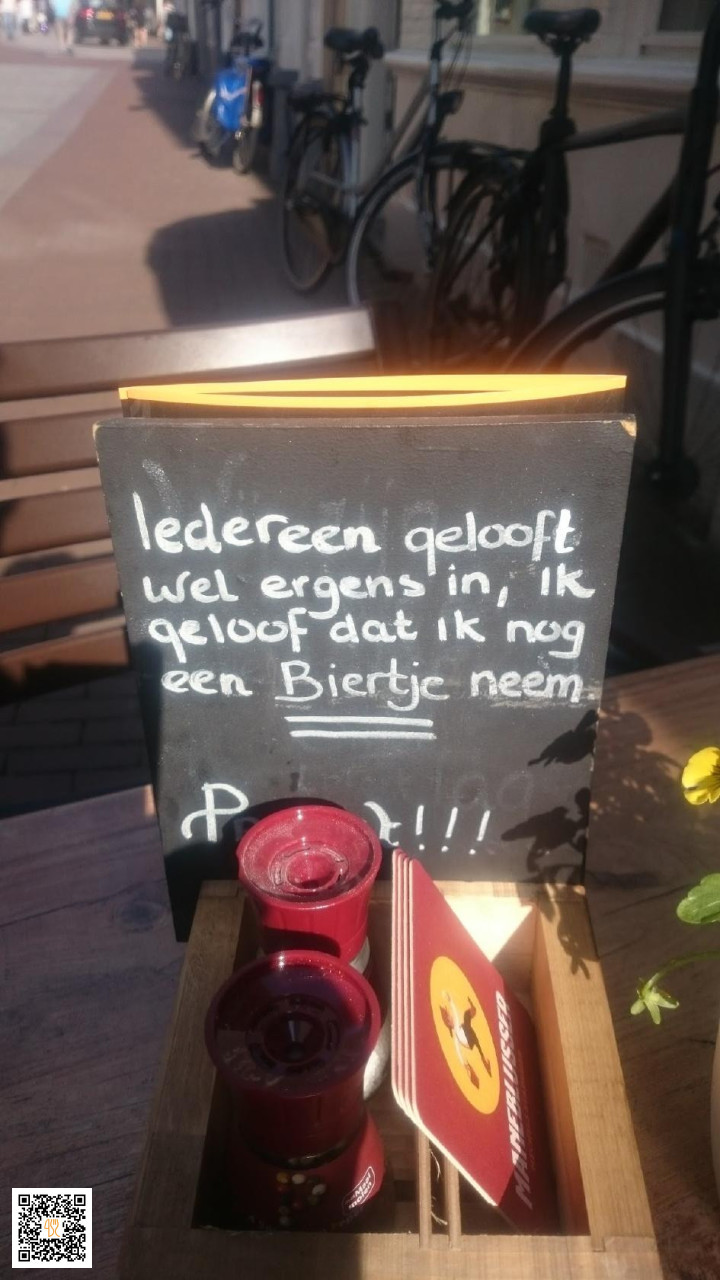 Iedereen gelooft
wel ergens in, ik
geloof dat ik nog
een Biertje neem
MANEBLUSSER